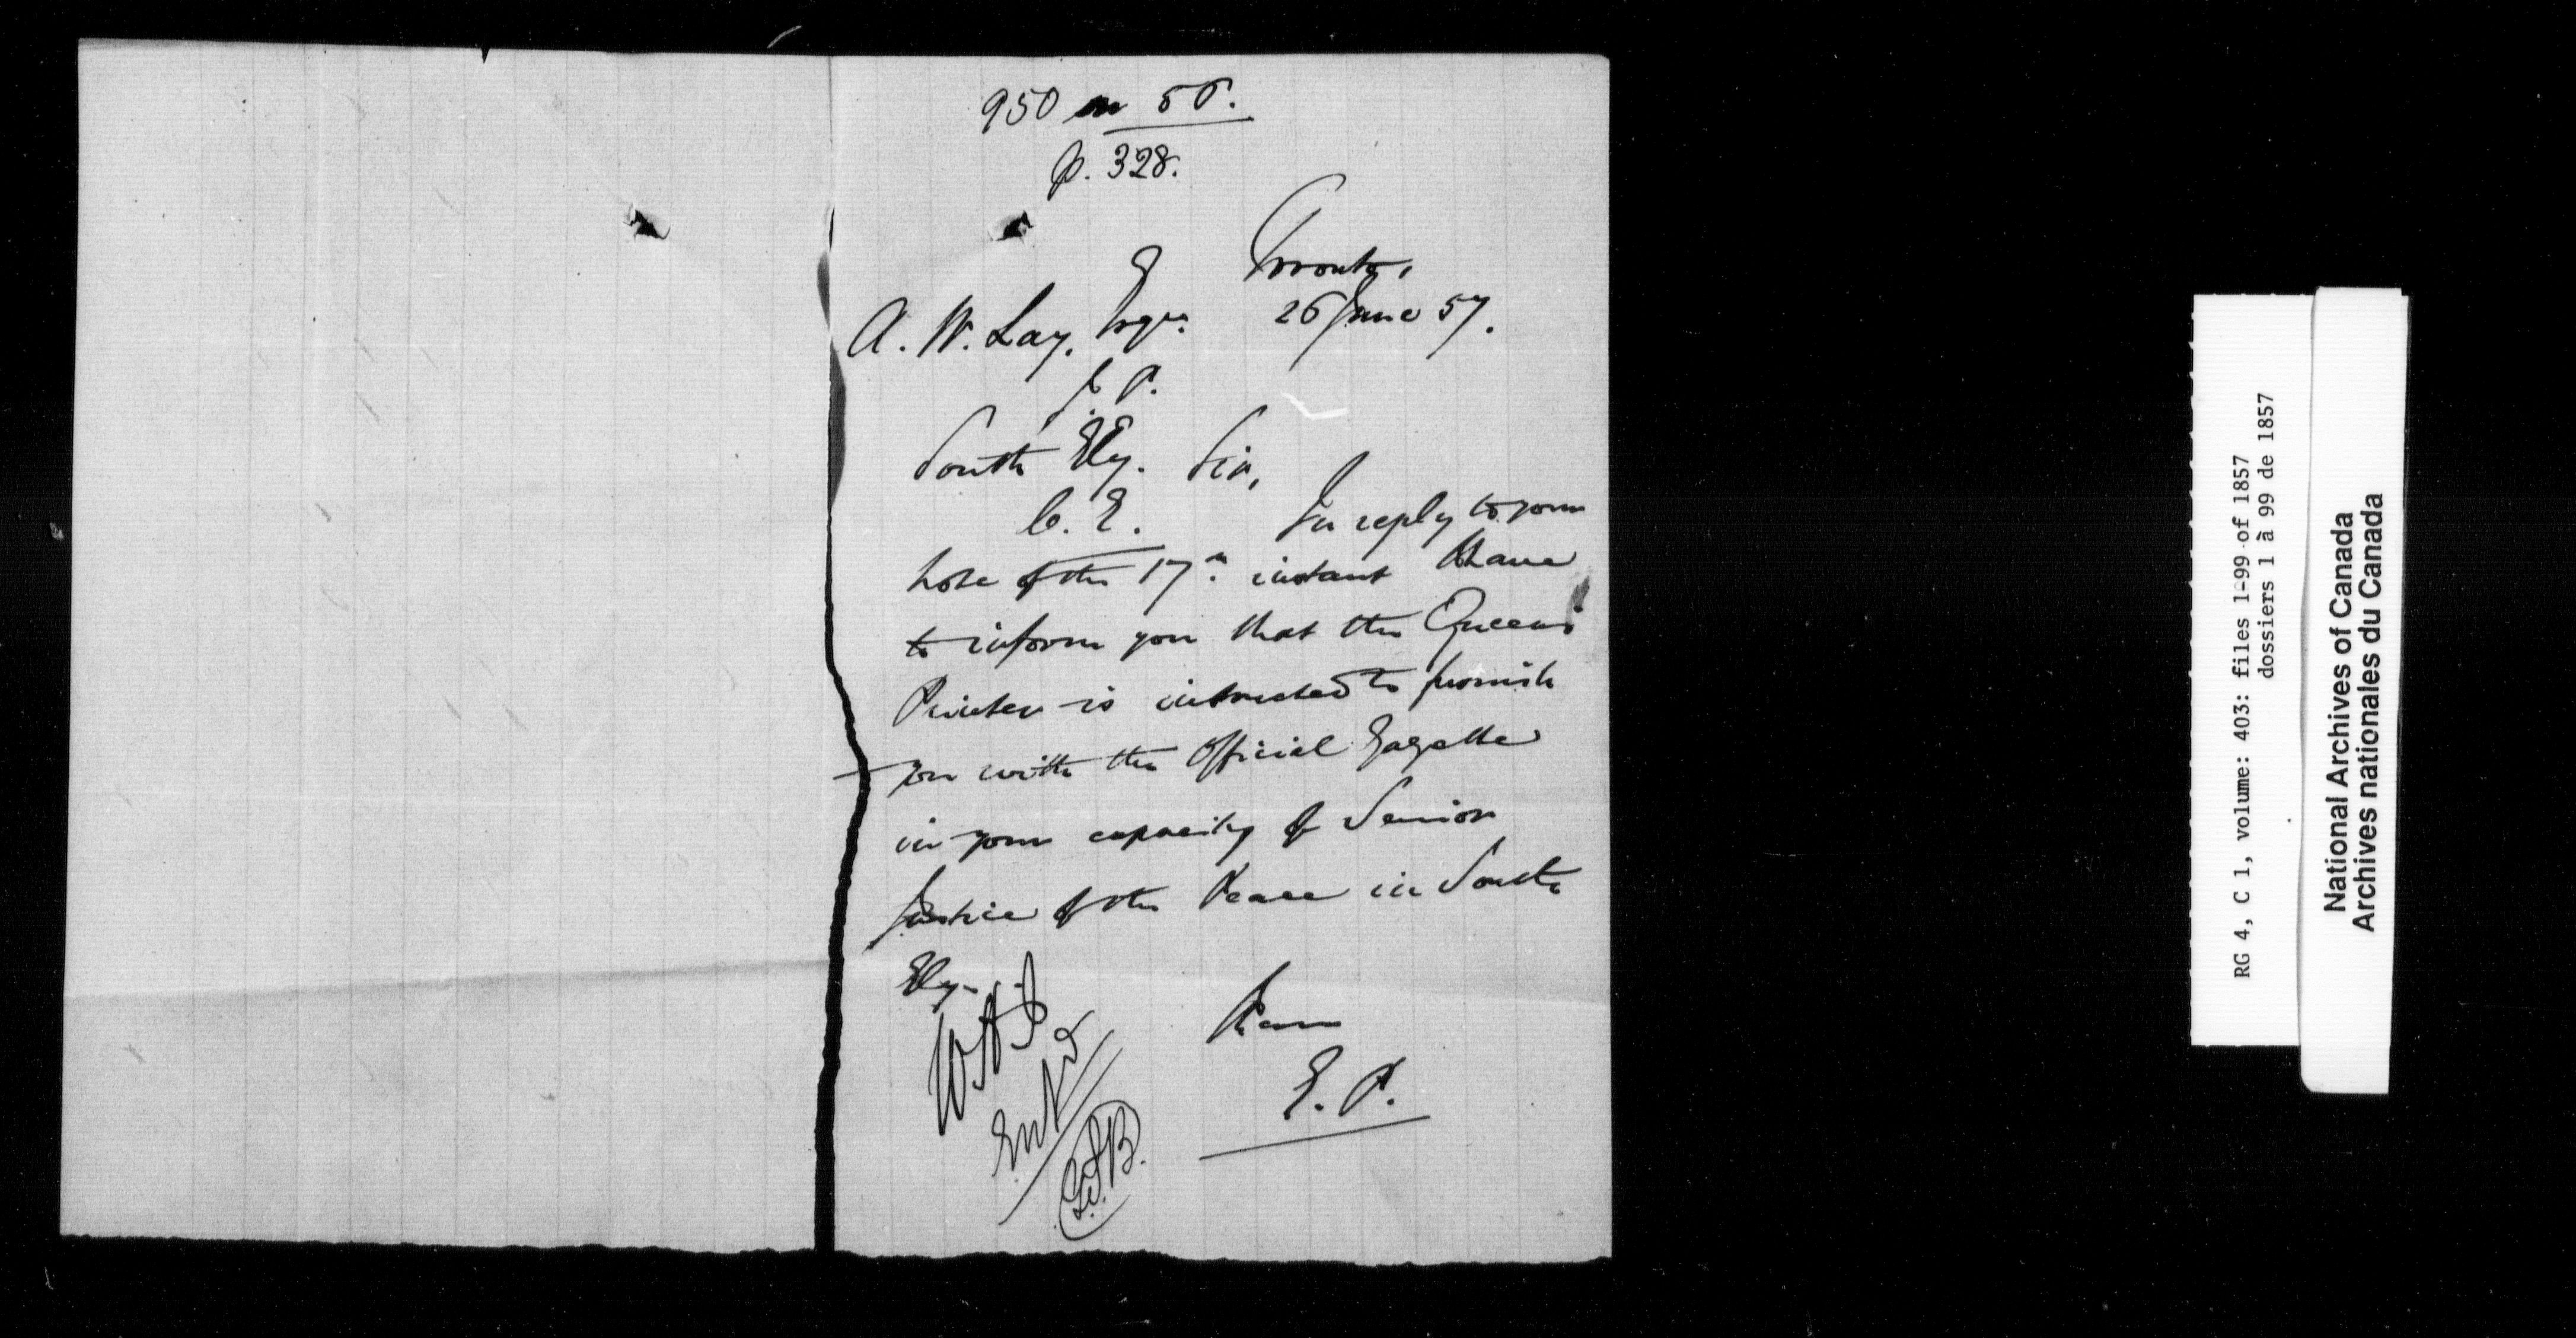 950 on 56.
p. 328.
Toronto,
26 June 57.
A. W. Lay, Esqre.
J. P.
South Ely.
C. E.
Sir,
In reply to your
note of the 17th. instant I have
to inform you that the Queens
Printer is instructed to furnish
you with the Official Gazette
in your capacity of Senior
Justice of the Peace in South
Ely.
I have
E. P.
Entd
RG 4, C 1, volume: 403: files 1-99 of 1857
dossiers 1 à 99 de 1857
National Archives of Canada
Archives nationales du Canada